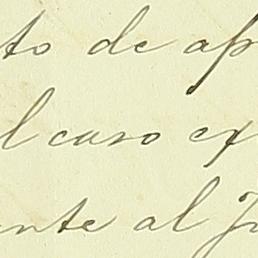 to de ap
l caso ex
nte al Ju